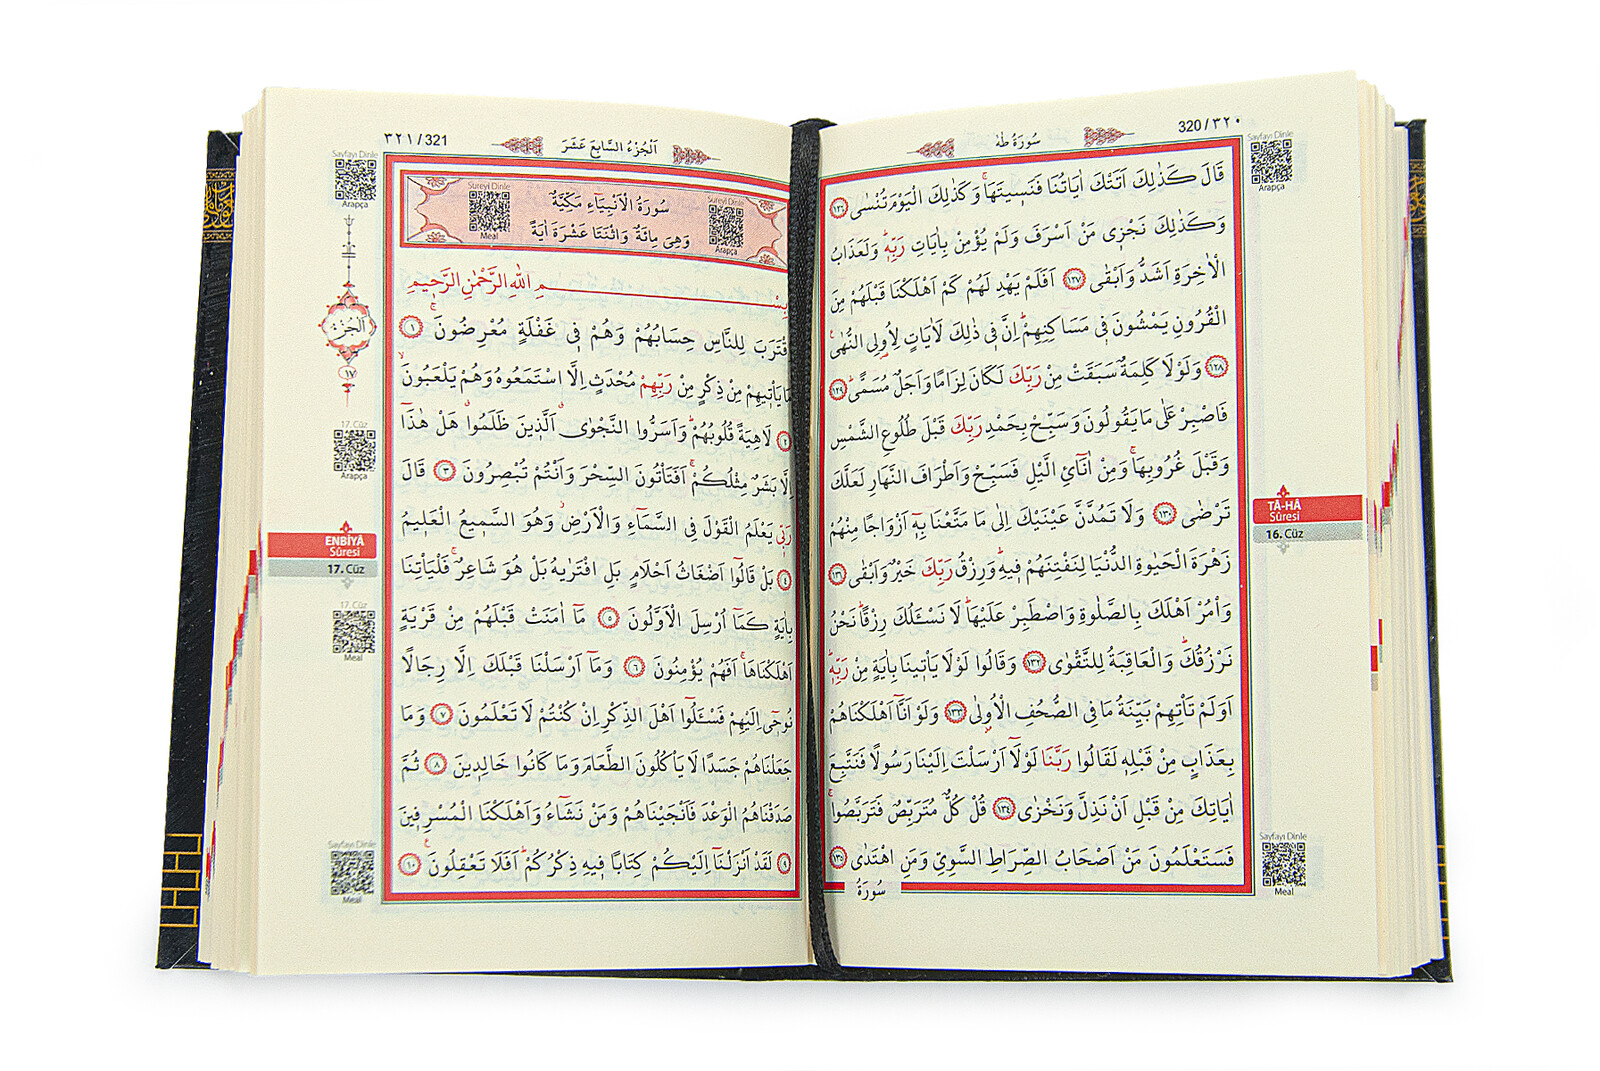 320/٣٢٠
سُورَةُ طٰهٰ
Sayfayı Dinle
Arapça
قَالَ كَذٰلِكَ اَتَتْكَ اٰيَاتُنَا فَنَس۪يتَهَاۚ وَكَذٰلِكَ الْيَوْمَ تُنْسٰى ﴿١٢٦﴾
وَكَذٰلِكَ نَجْز۪ي مَنْ اَسْرَفَ وَلَمْ يُؤْمِنْ بِاٰيَاتِ رَبِّه۪ۜ وَلَعَذَابُ
الْاٰخِرَةِ اَشَدُّ وَاَبْقٰى ﴿١٢٧﴾ اَفَلَمْ يَهْدِ لَهُمْ كَمْ اَهْلَكْنَا قَبْلَهُمْ مِنَ
الْقُرُونِ يَمْشُونَ ف۪ي مَسَاكِنِهِمْۜ اِنَّ ف۪ي ذٰلِكَ لَاٰيَاتٍ لِاُو۬لِي النُّهٰى۟
﴿١٢٨﴾ وَلَوْلَا كَلِمَةٌ سَبَقَتْ مِنْ رَبِّكَ لَكَانَ لِزَامًا وَاَجَلٌ مُسَمًّىۜ ﴿١٢٩﴾
فَاصْبِرْ عَلٰى مَا يَقُولُونَ وَسَبِّحْ بِحَمْدِ رَبِّكَ قَبْلَ طُلُوعِ الشَّمْسِ
وَقَبْلَ غُرُوبِهَاۚ وَمِنْ اٰنَآئِ الَّيْلِ فَسَبِّحْ وَاَطْرَافَ النَّهَارِ لَعَلَّكَ
تَرْضٰى ﴿١٣٠﴾ وَلَا تَمُدَّنَّ عَيْنَيْكَ اِلٰى مَا مَتَّعْنَا بِه۪ٓ اَزْوَاجًا مِنْهُمْ
زَهْرَةَ الْحَيٰوةِ الدُّنْيَا لِنَفْتِنَهُمْ ف۪يهِۜ وَرِزْقُ رَبِّكَ خَيْرٌ وَاَبْقٰى ﴿١٣١﴾
وَأْمُرْ اَهْلَكَ بِالصَّلٰوةِ وَاصْطَبِرْ عَلَيْهَاۜ لَا نَسْـَٔلُكَ رِزْقًاۜ نَحْنُ
نَرْزُقُكَۜ وَالْعَاقِبَةُ لِلتَّقْوٰى ﴿١٣٢﴾ وَقَالُوا لَوْلَا يَأْت۪ينَا بِاٰيَةٍ مِنْ رَبِّه۪ۜ
اَوَلَمْ تَأْتِهِمْ بَيِّنَةُ مَا فِي الصُّحُفِ الْاُو۫لٰى ﴿١٣٣﴾ وَلَوْ اَنَّٓا اَهْلَكْنَاهُمْ
بِعَذَابٍ مِنْ قَبْلِه۪ لَقَالُوا رَبَّنَا لَوْلَٓا اَرْسَلْتَ اِلَيْنَا رَسُولًا فَنَتَّبِعَ
اٰيَاتِكَ مِنْ قَبْلِ اَنْ نَذِلَّ وَنَخْزٰى ﴿١٣٤﴾ قُلْ كُلٌّ مُتَرَبِّصٌ فَتَرَبَّصُواۚ
فَسَتَعْلَمُونَ مَنْ اَصْحَابُ الصِّرَاطِ السَّوِيِّ وَمَنِ اهْتَدٰى ﴿١٣٥﴾
سُورَةُ
TÂ-HÂ
Sûresi
16. Cüz
Sayfayı Dinle
Meal
٣٢١/321
اَلْجُزْءُ السَّابِعَ عَشَرَ
Sayfayı Dinle
Arapça
Sureyi Dinle
Arapça
سُورَةُ الْاَنْبِيَٓاءِ مَكِّيَّةٌ
وَهِيَ مِائَةٌ وَاثْنَتَا عَشْرَةَ اٰيَةً
Sureyi Dinle
Meal
بِسْمِ اللهِ الرَّحْمٰنِ الرَّح۪يمِ
اِقْتَرَبَ لِلنَّاسِ حِسَابُهُمْ وَهُمْ ف۪ي غَفْلَةٍ مُعْرِضُونَۚ ﴿١﴾
مَا يَأْت۪يهِمْ مِنْ ذِكْرٍ مِنْ رَبِّهِمْ مُحْدَثٍ اِلَّا اسْتَمَعُوهُ وَهُمْ يَلْعَبُونَۙ
﴿٢﴾ لَاهِيَةً قُلُوبُهُمْۜ وَاَسَرُّوا النَّجْوٰىۗ اَلَّذ۪ينَ ظَلَمُواۗ هَلْ هٰذَٓا
اِلَّا بَشَرٌ مِثْلُكُمْۚ اَفَتَأْتُونَ السِّحْرَ وَاَنْتُمْ تُبْصِرُونَ ﴿٣﴾ قَالَ
رَبّ۪ي يَعْلَمُ الْقَوْلَ فِي السَّمَٓاءِ وَالْاَرْضِۘ وَهُوَ السَّم۪يعُ الْعَل۪يمُ
﴿٤﴾ بَلْ قَالُٓوا اَضْغَاثُ اَحْلَامٍ بَلِ افْتَرٰيهُ بَلْ هُوَ شَاعِرٌۚ فَلْيَأْتِنَا
بِاٰيَةٍ كَمَٓا اُرْسِلَ الْاَوَّلُونَ ﴿٥﴾ مَٓا اٰمَنَتْ قَبْلَهُمْ مِنْ قَرْيَةٍ
اَهْلَكْنَاهَاۚ اَفَهُمْ يُؤْمِنُونَ ﴿٦﴾ وَمَٓا اَرْسَلْنَا قَبْلَكَ اِلَّا رِجَالًا
نُوح۪ٓي اِلَيْهِمْ فَسْـَٔلُٓوا اَهْلَ الذِّكْرِ اِنْ كُنْتُمْ لَا تَعْلَمُونَ ﴿٧﴾ وَمَا
جَعَلْنَاهُمْ جَسَدًا لَا يَأْكُلُونَ الطَّعَامَ وَمَا كَانُوا خَالِد۪ينَ ﴿٨﴾ ثُمَّ
صَدَقْنَاهُمُ الْوَعْدَ فَاَنْجَيْنَاهُمْ وَمَنْ نَشَٓاءُ وَاَهْلَكْنَا الْمُسْرِف۪ينَ
﴿٩﴾ لَقَدْ اَنْزَلْنَٓا اِلَيْكُمْ كِتَابًا ف۪يهِ ذِكْرُكُمْۜ اَفَلَا تَعْقِلُونَ۟ ﴿١٠﴾
اَلْجُزْءُ
١٧
17. Cüz
Arapça
ENBİYÂ
Sûresi
17. Cüz
17. Cüz
Meal
Sayfayı Dinle
Meal